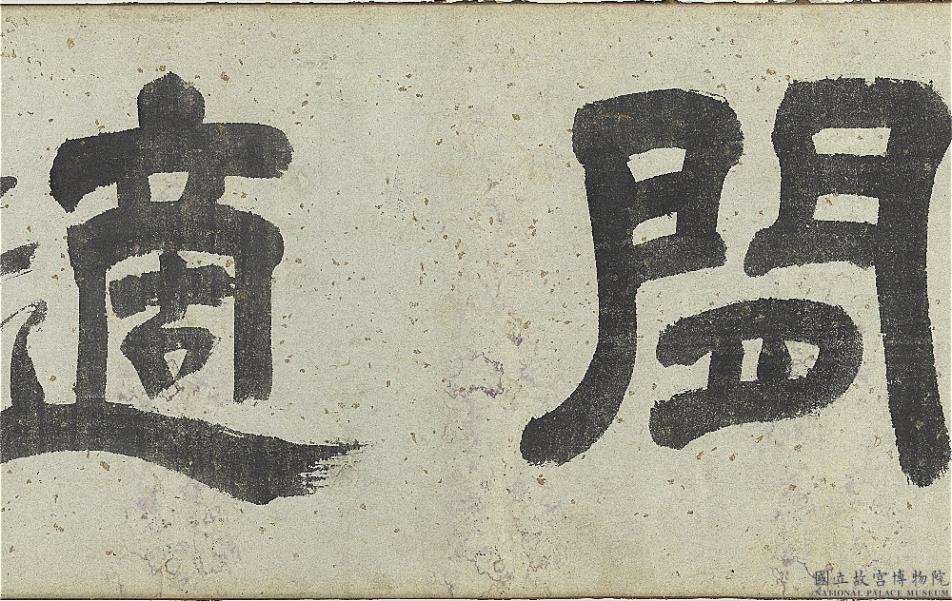 閒適
國立故宮博物院
NATIONAL PALACE MUSEUM